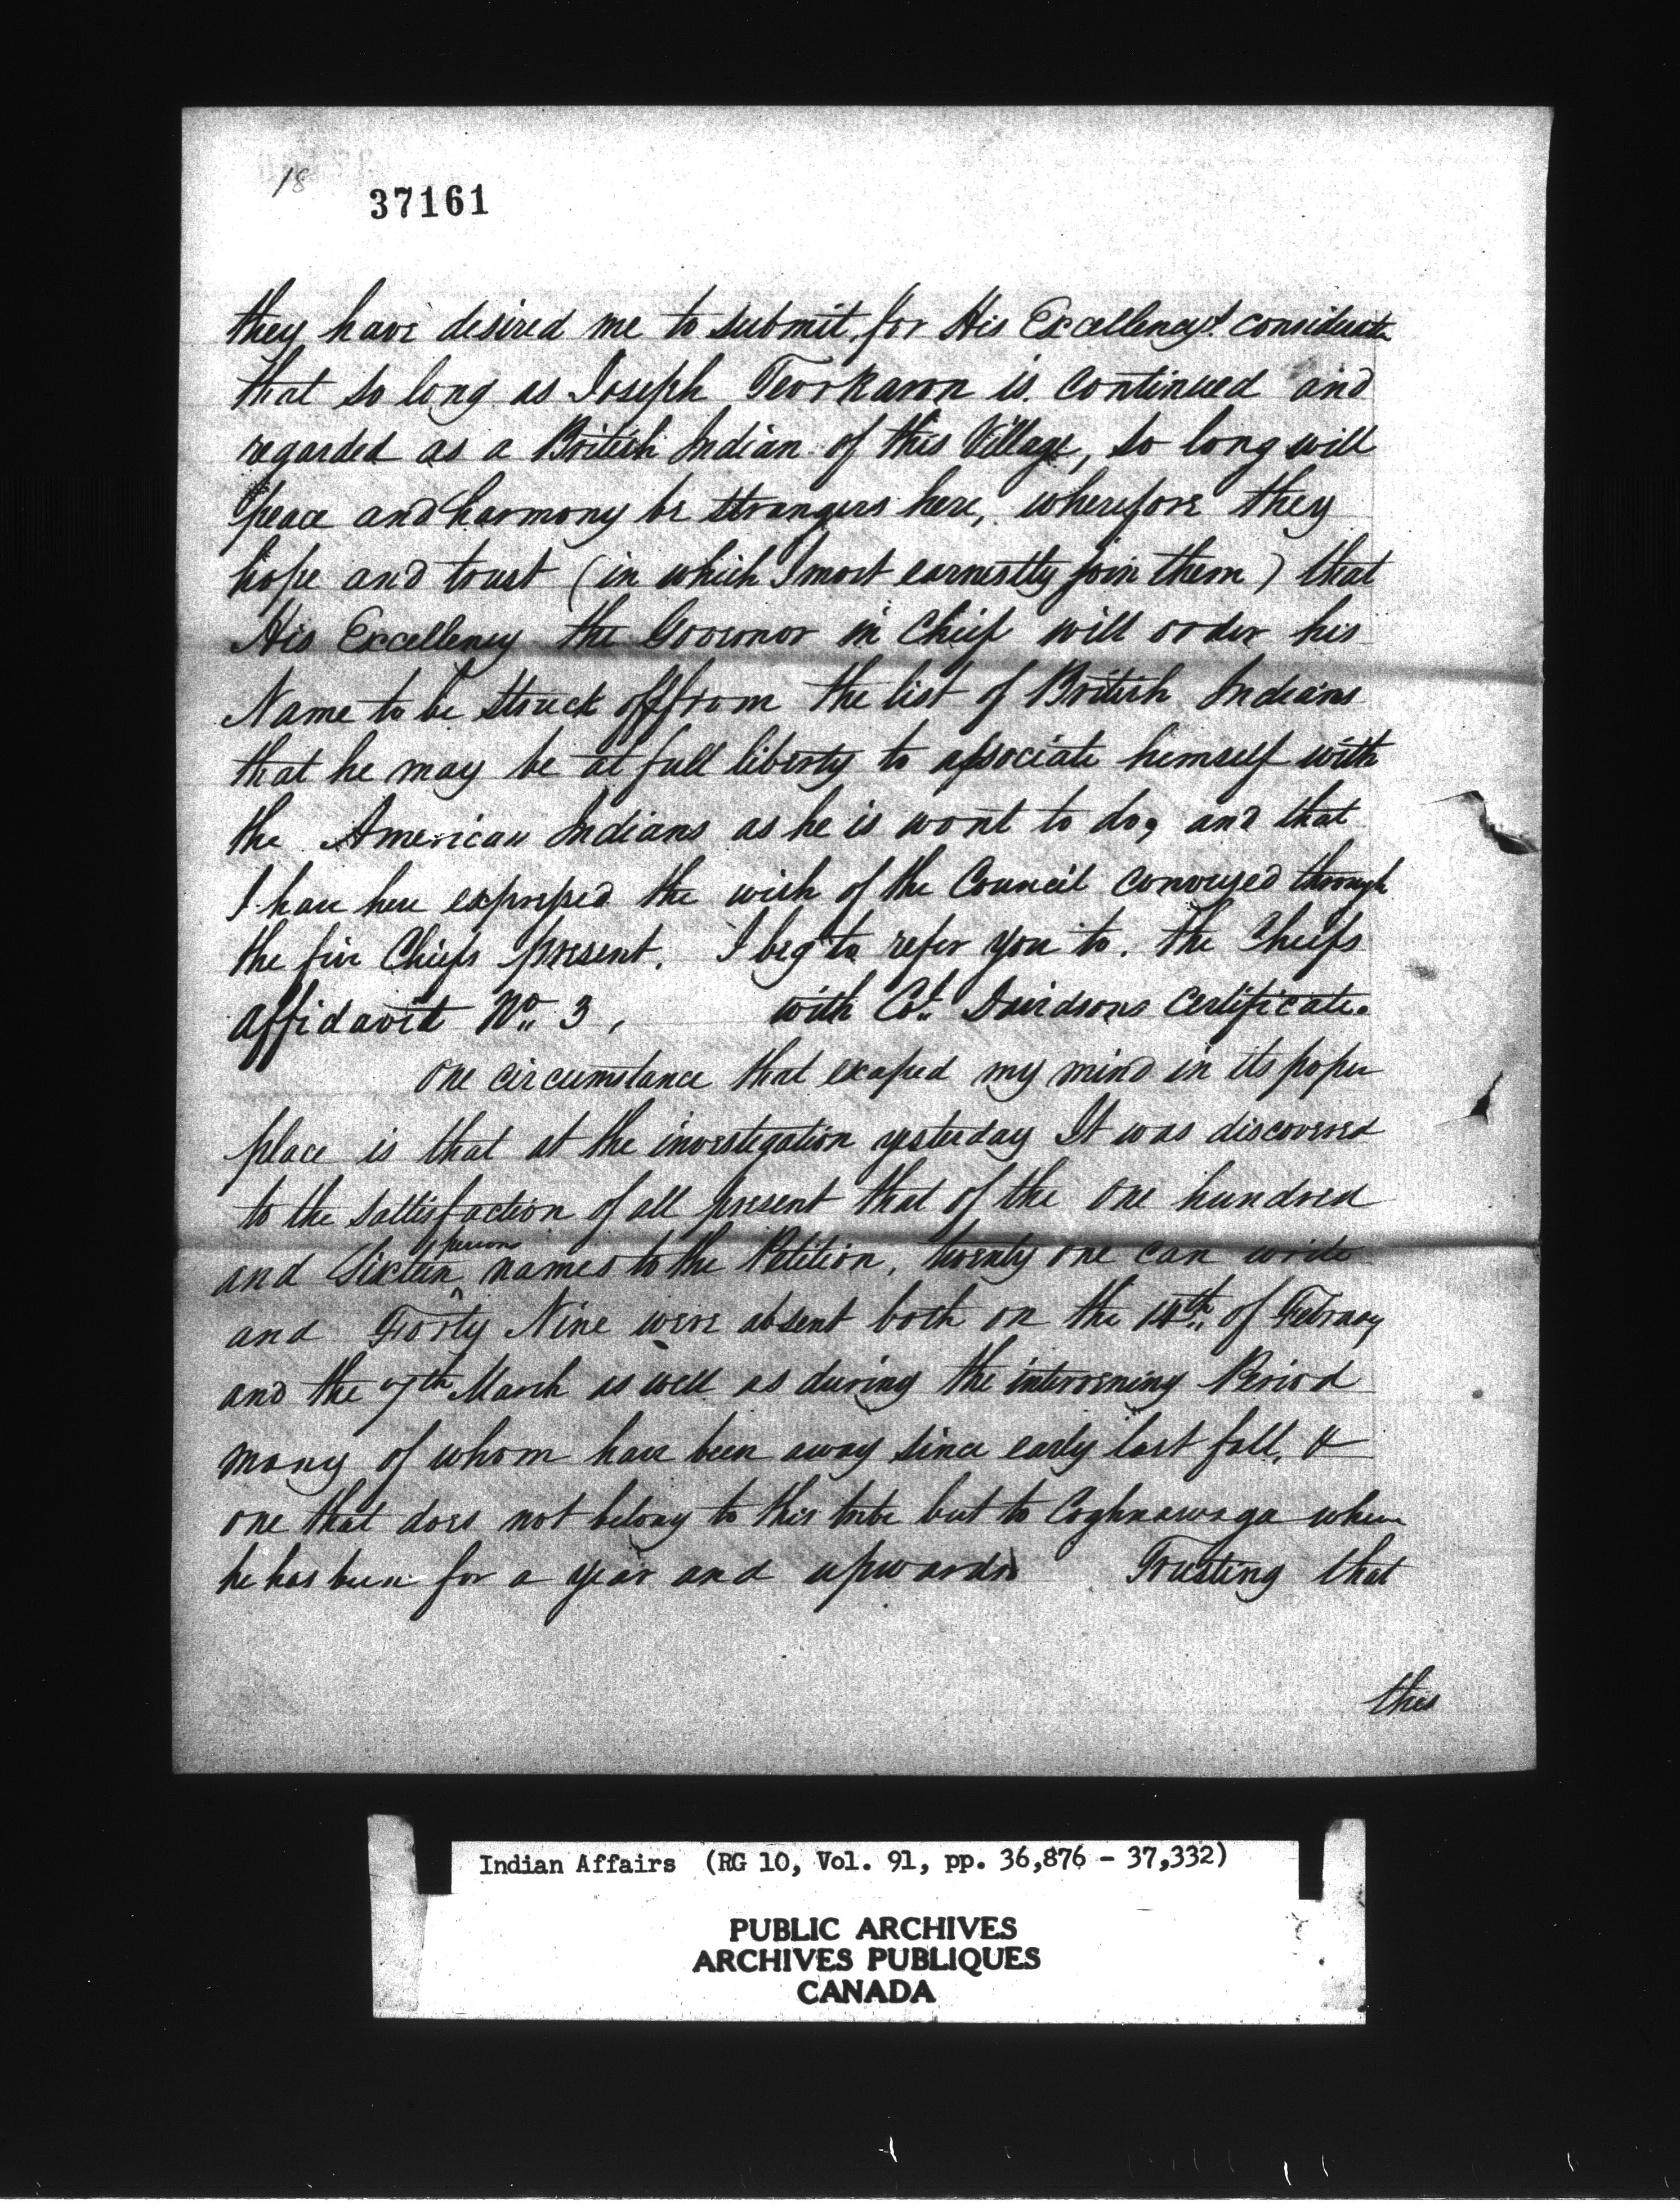 18
37161
they have desired me to submit for His Excellency's considerate
that so long as Joseph Teorkaron is continued and
regarded as a British Indian of this Village, so long will
peace and harmony be strangers here, wherefore they
hope and trust (in which I most earnestly join them) that
His Excellency the Governor in Chief will order his
Name to be struck off from the list of British Indians
that he may be at full liberty to associate himself with
the American Indians as he is wont to do, and that
I have here expressed the wish of the Council conveyed through
the five Chiefs present. I beg to refer you to. the Chiefs
affidavit No. 3, with Col. Davidsons Certificate.
One circumstance that escaped my mind in its proper
place is that at the investigation yesterday It was discovered
to the sattisfaction of all present that of the one hundred
and Sixteen names to the Petition, twenty one can write
and Forty Nine were absent both on the 14th of February
and the 7th March as well as during the intervening Period
many of whom have been away since early last fall, &
one that does not belong to this tribe but to Coghnawaga where
he has been for a year and upwards Trusting that
this
Indian Affairs (RG 10, Vol. 91, pp. 36,876 - 37,332)
PUBLIC ARCHIVES
ARCHIVES PUBLIQUES
CANADA